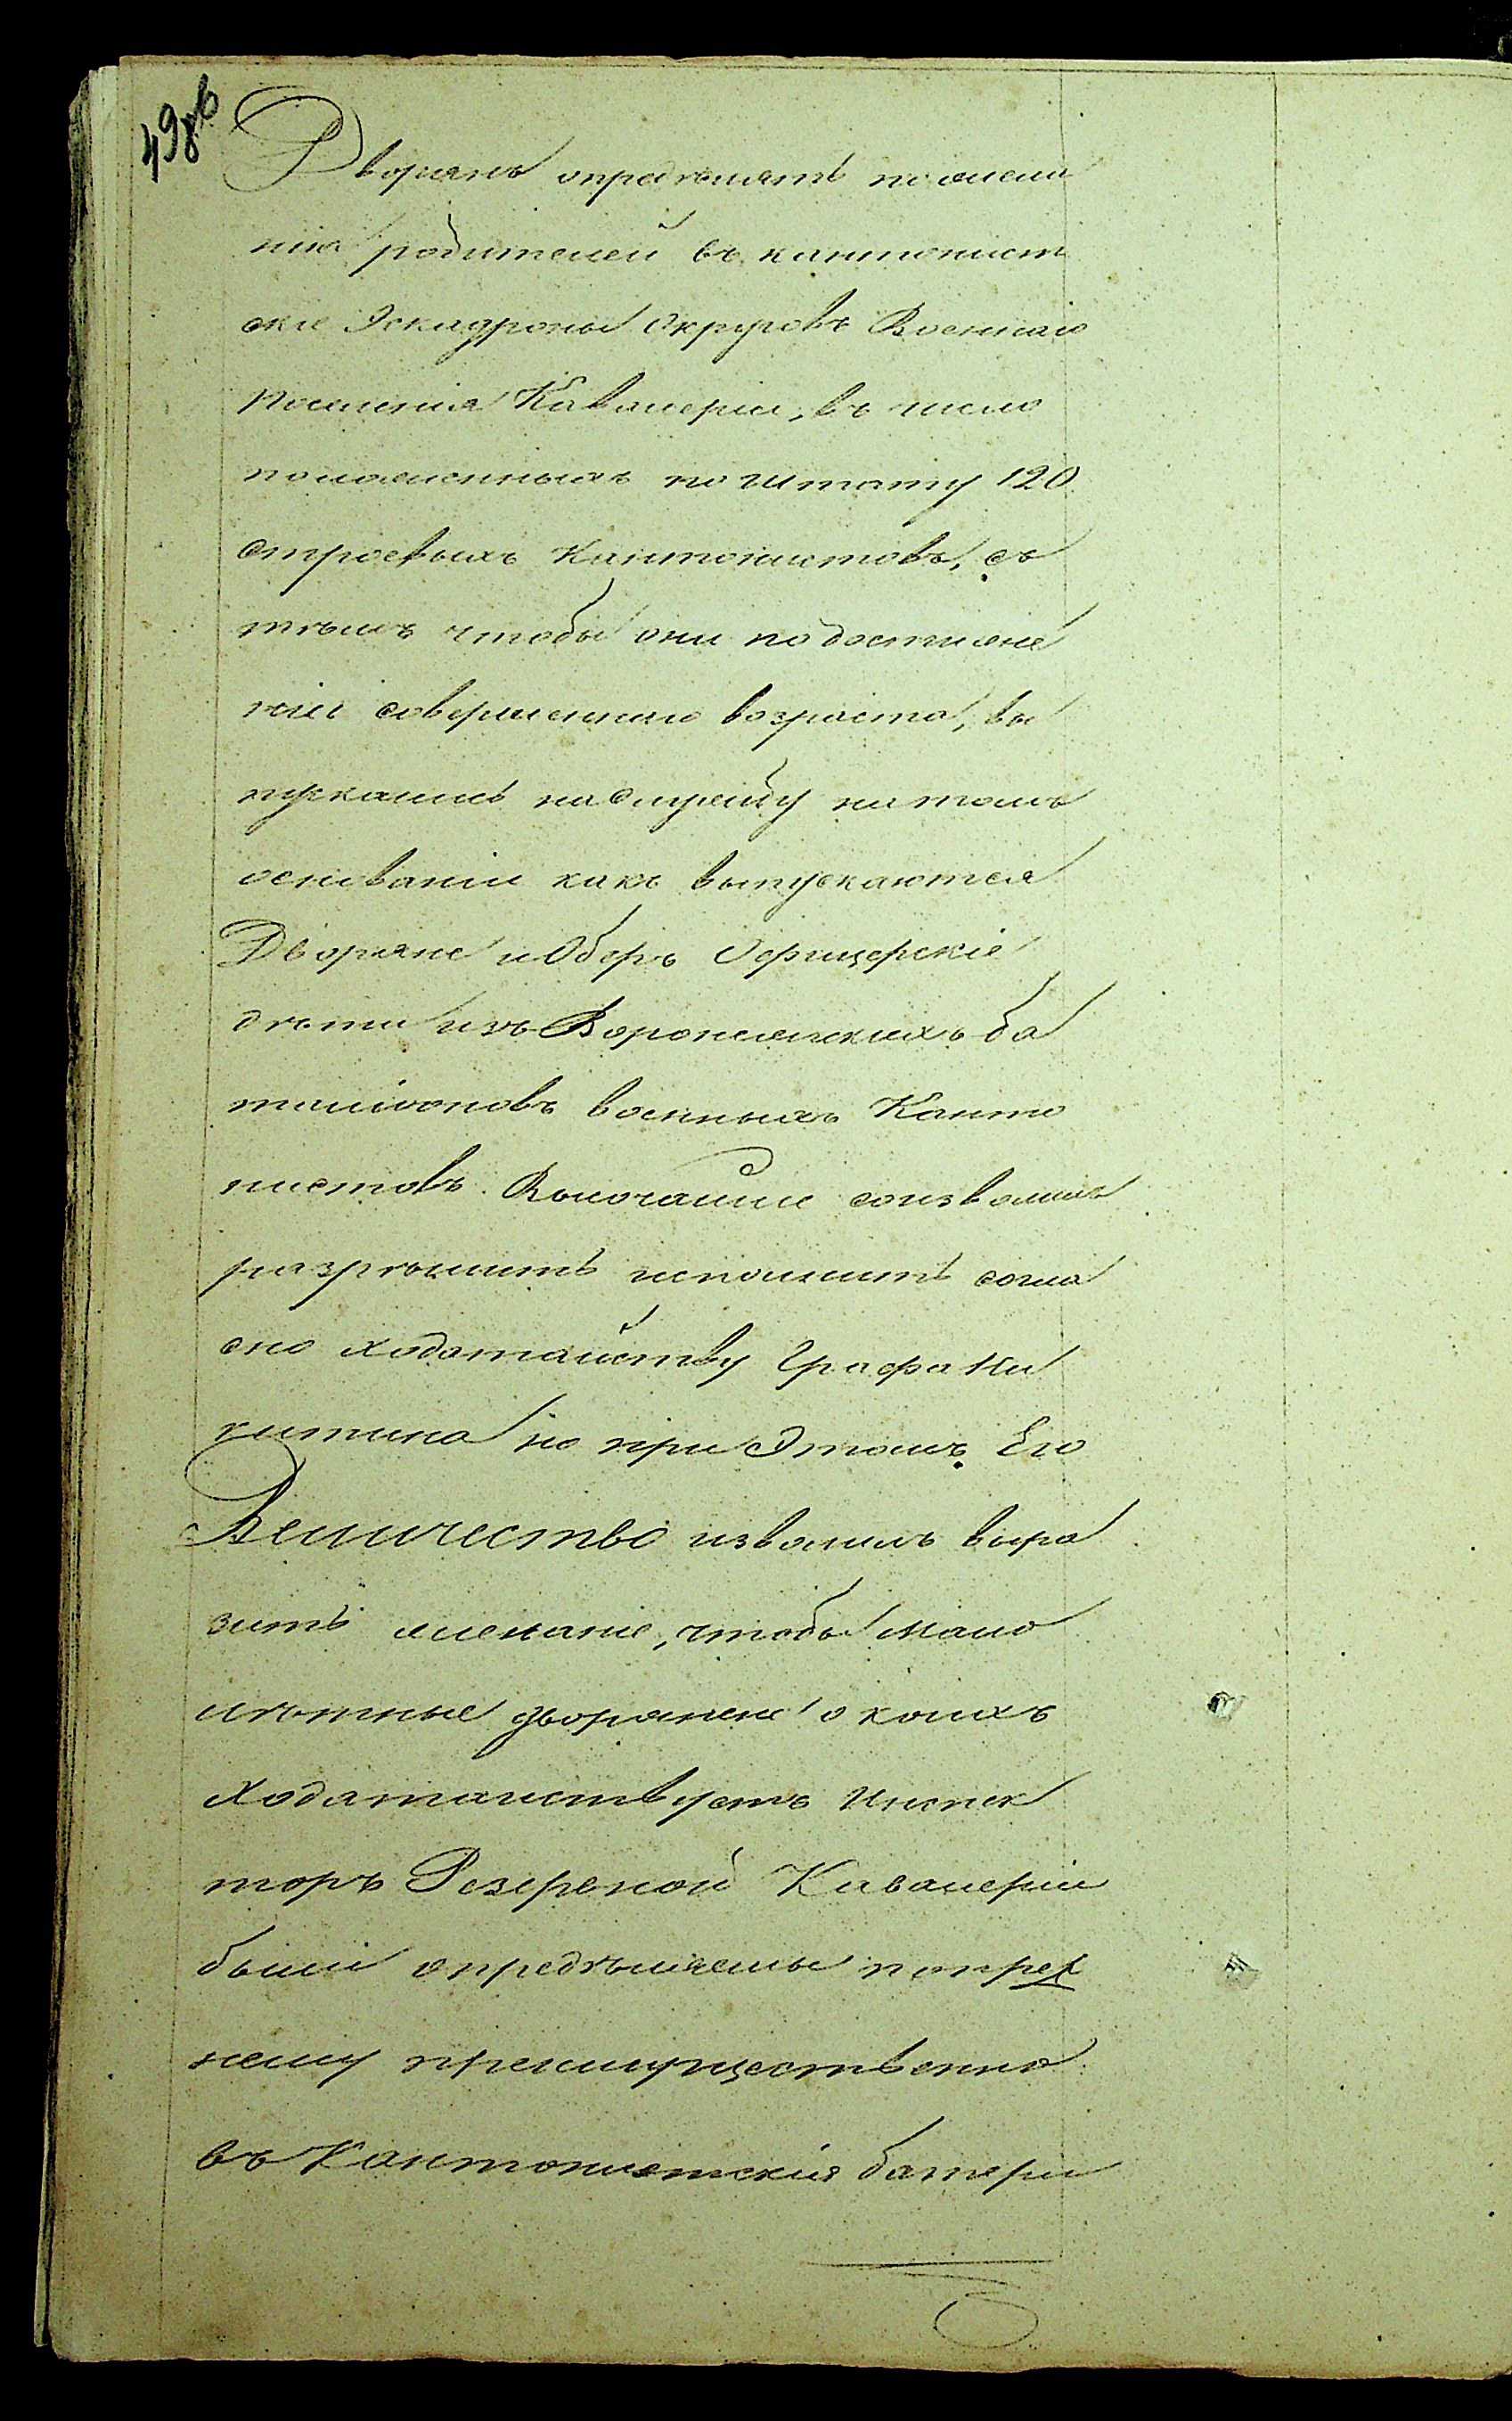 498 об
Дворянъ опредѣлять по жела
нiю родителей въ кантонист
скiе Эскадроны Округовъ Военнаго
поселенiя Кавалерiи, въ число
положенныхъ по Штату 120
строевыхъ Кантонистовъ, съ
тѣмъ чтобы они по достиже
нiи совершеннаго возраста, вы
пускались на службу на томъ
основанiи какъ выпускаются
Дворяне и Оберъ Офицерскiе
дѣти изъ Воронежскихъ ба
талiоновъ военныхъ Канто
нистовъ. Высочайше соизволилъ
разрѣшить исполнить согла
сно ходатайству Графа Ни
китина но при Этомъ Его
Величество изволилъ выра
зить желанiе, чтобы Мало
лѣтные дворяне о коихъ
Ходатайствуетъ Инспек
торъ Резервной Кавалерiи
были опредѣляемы попреж
нему преимущественно
въ Кантонистскiя батареи